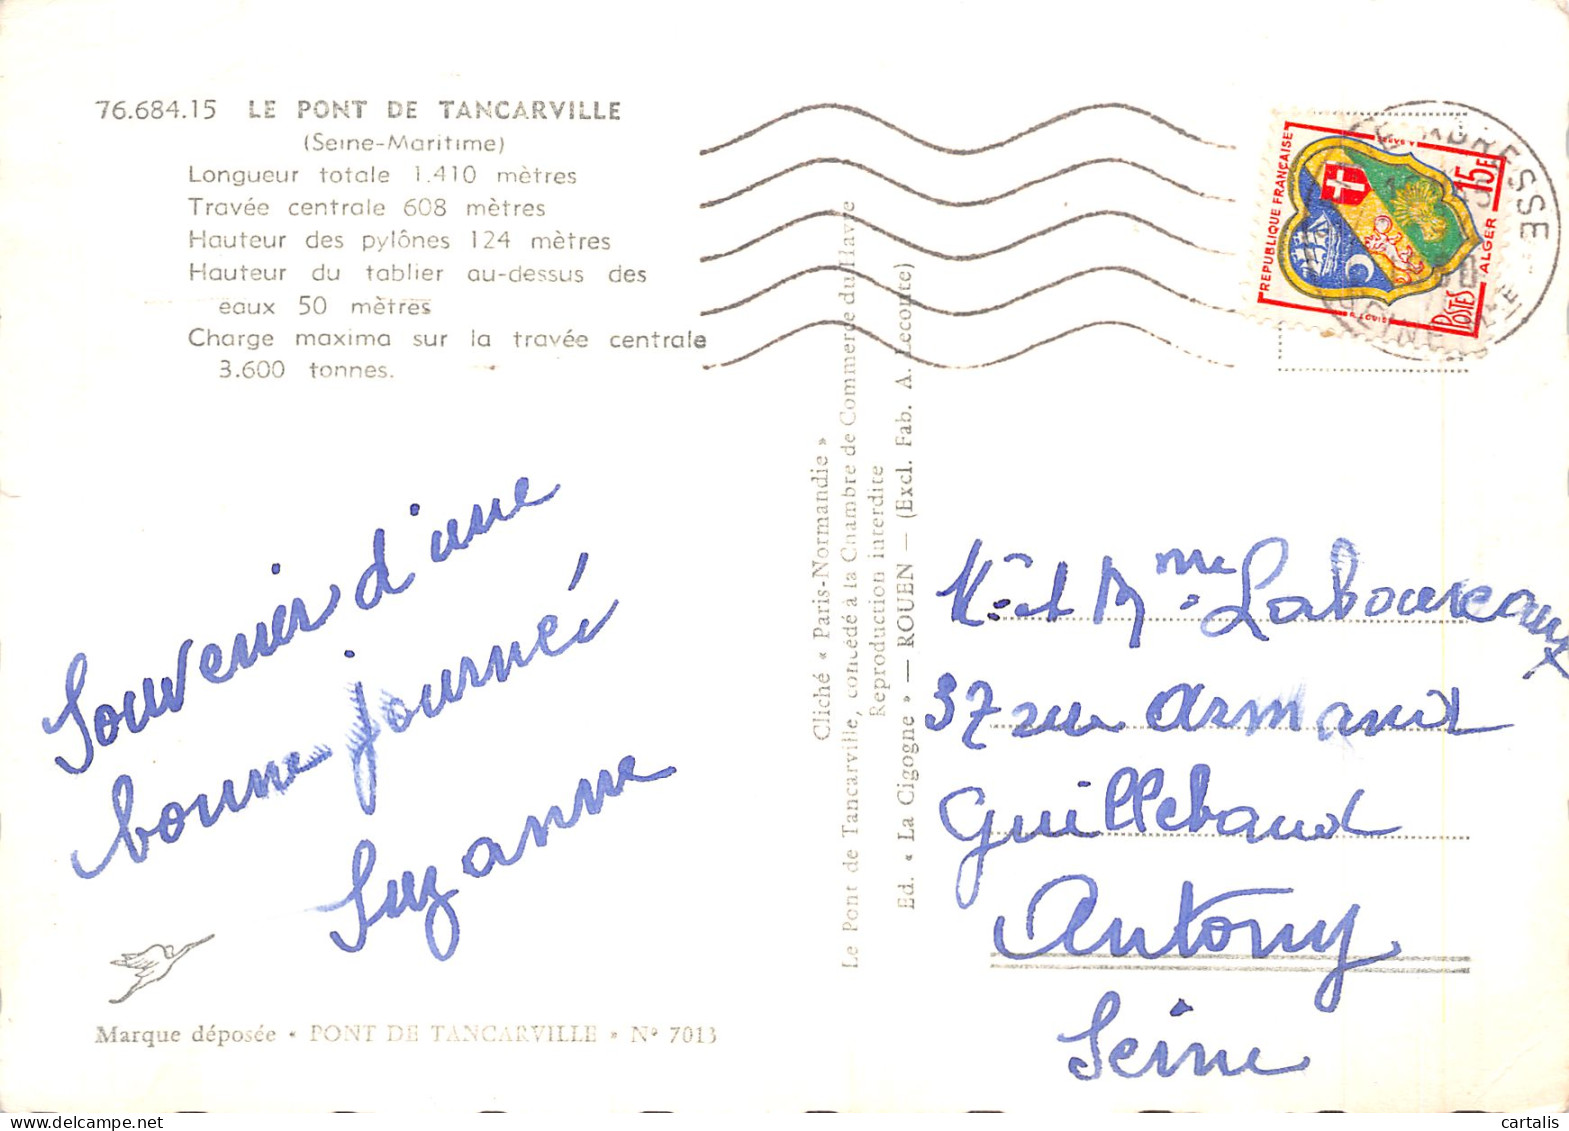 76.684.15 LE PONT DE TANCARVILLE
(Seine-Maritime)
Longueur totale 1.410 mètres
Travée centrale 608 mètres
Hauteur des pylônes 124 mètres
Hauteur du tablier au-dessus des
eaux 50 mètres
Charge maxima sur la travée centrale
3.600 tonnes.
Souvenir d'une
bonne journée
Suzanne
Marque déposée « PONT DE TANCARVILLE » N° 7013
Cliché « Paris-Normandie »
Le Pont de Tancarville, concédé à la Chambre de Commerce du Havre
Reproduction interdite
Ed. « La Cigogne » — ROUEN — (Excl. Fab. A. Leconte)
REPUBLIQUE FRANÇAISE
15F
ALGER
POSTES
ADRESSE
Mr et Mme Laboureaux
37 rue Armand
Guillebaud
Antony
Seine
cartalis